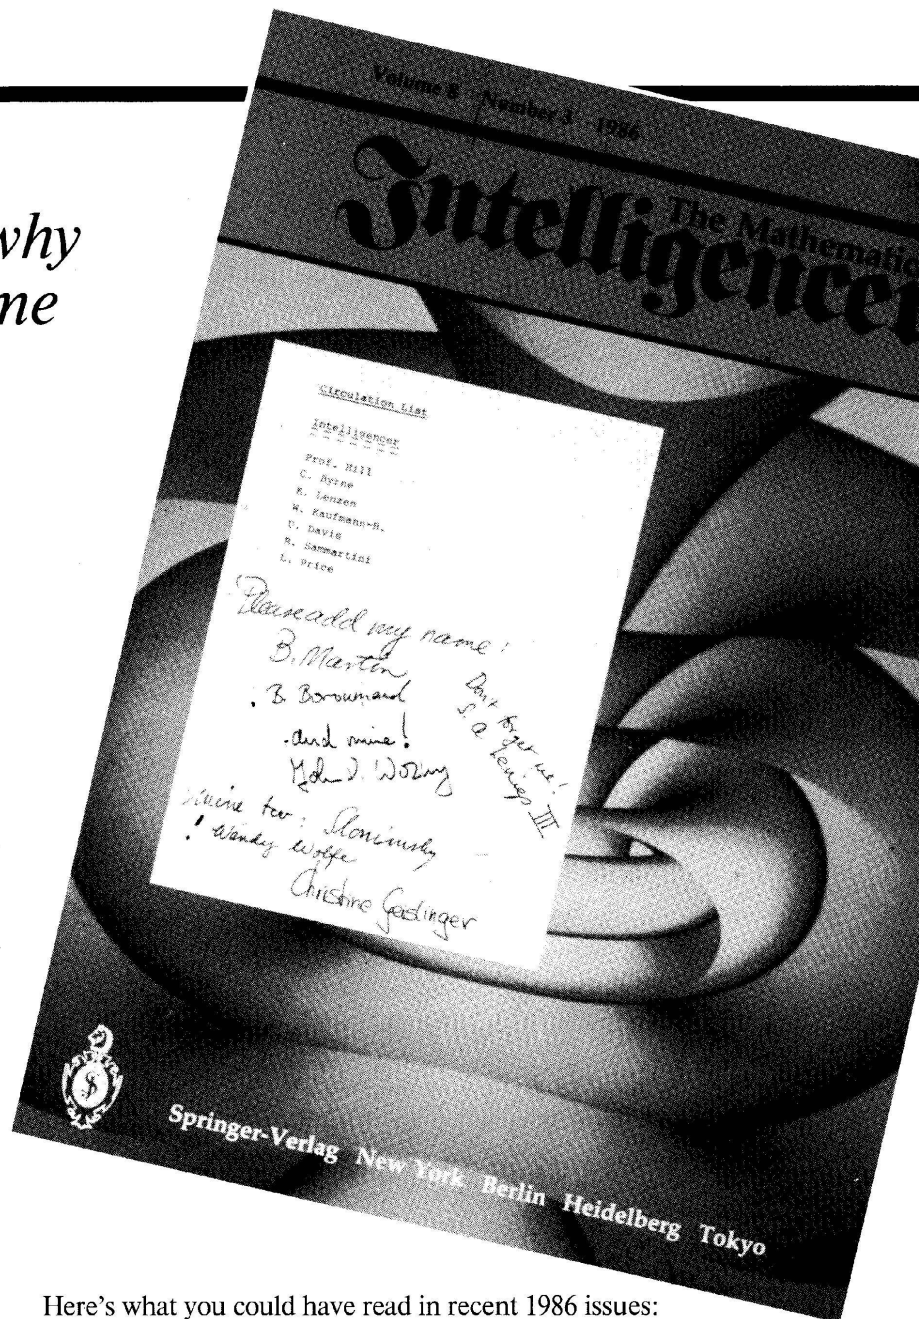 why
me
Volume 8 Number 3 1986
The Mathematic
Intelligencer
Circulation List
Intelligencer
Prof. Hill
C. Byrne
K. Lenzen
W. Kaufmann-B.
C. Davis
R. Sammartini
L. Price
Please add my name!
B. Martin
B. Boroumand
and mine!
John
Don't forget me!
S. a III
mine too.
! Wendy Wolfe
Christine
Springer-Verlag New York Berlin Heidelberg Tokyo
Here's what you could have read in recent 1986 issues: